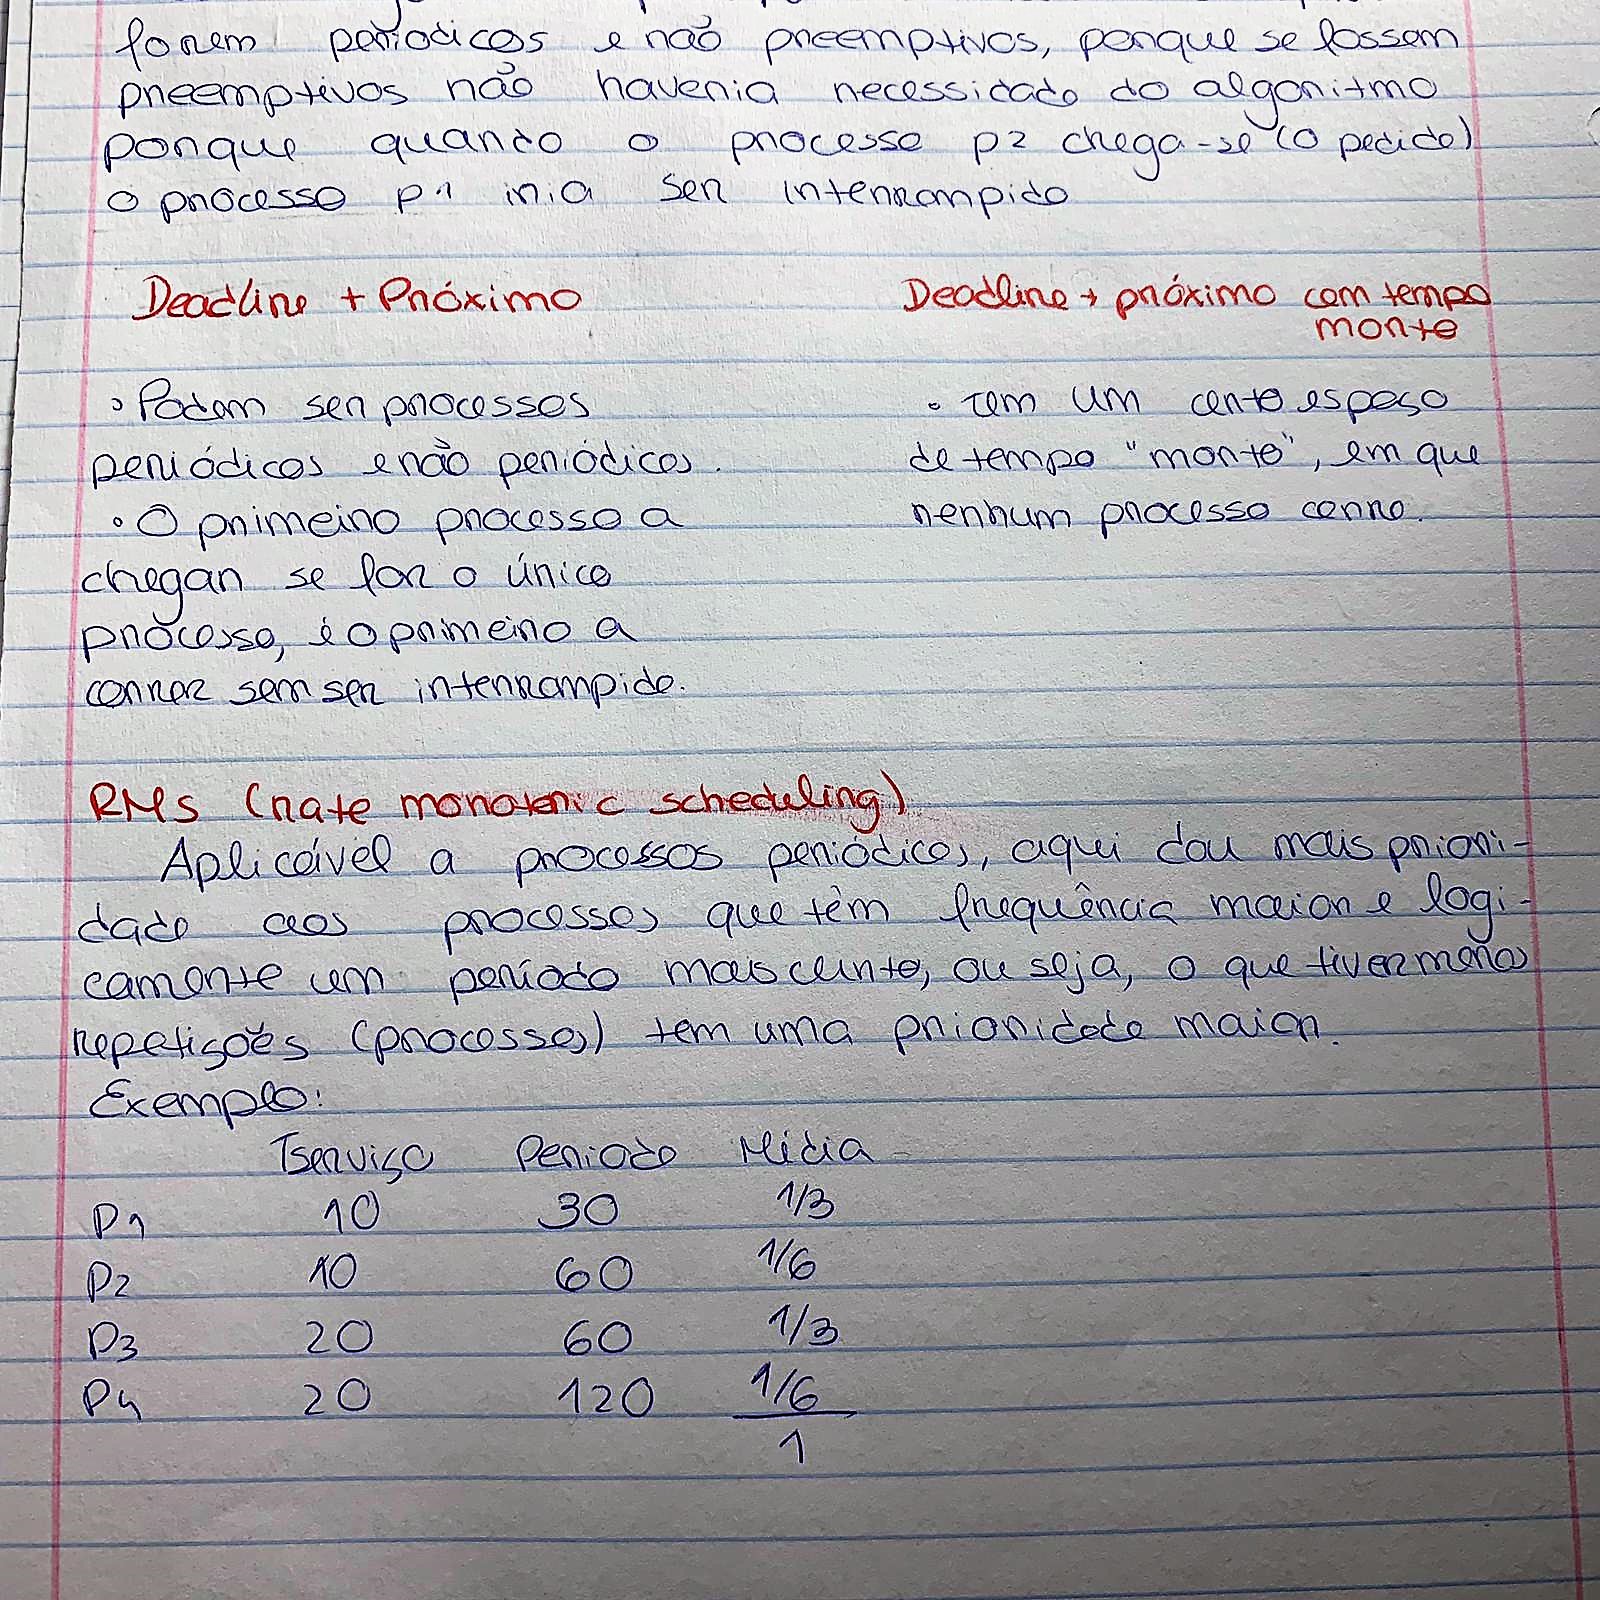 forem periodicos e não preemptivos, porque se fossem
preemptivos não haveria necessidade do algoritmo
porque quando o processo p2 chega-se (o pedido)
o processo p1 iria ser interrompido
Deadline + Próximo
Podem ser processos
periódicos e não periódicos.
• O primeiro processo a
chegar se for o único
processo, é o primeiro a
correr sem ser interrompido.
Deadline + próximo com tempo
morto
• Tem um certo espaço
de tempo "morto", em que
nenhum processo corre.
RMS (rate monotonic scheduling)
Aplicável a processos periódicos, aqui dou mais priori-
dade aos processos que têm frequência maior e logi-
camente um período mais curto, ou seja, o que tiver menos
repetições (processos) tem uma prioridade maior.
Exemplo:
Tserviço Periodo Média
P1 10 30 1/3
P2 10 60 1/6
P3 20 60 1/3
P4 20 120 1/6
1